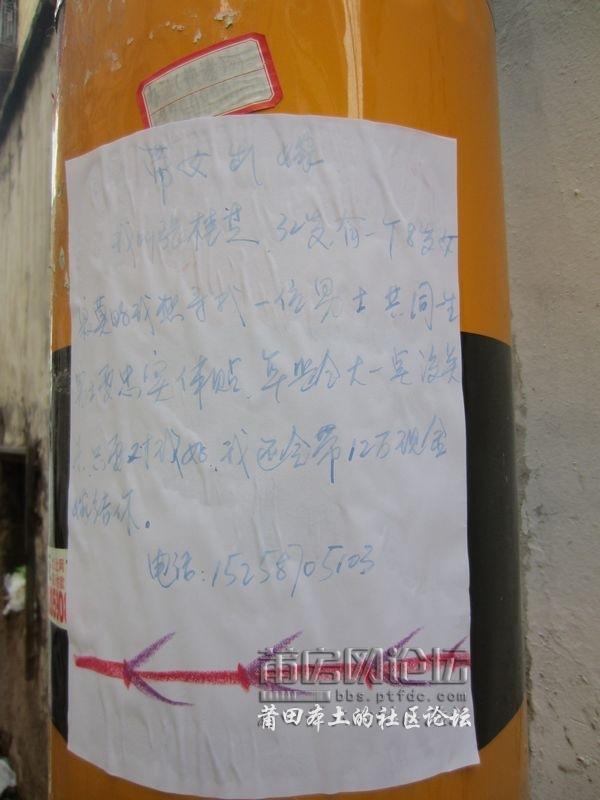 带女出嫁
我叫张桂芝、32岁,有一个8岁女
我想寻找一位男士共同生
要忠实体贴、年岁大一点没关
只要对我好、我还会带12万现金
嫁给你。
电话:15258705103
莆房网论坛
bbs.ptfdc.com
莆田本土的社区论坛